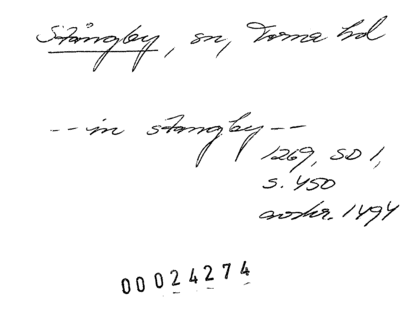 Stångby, sn, Torna hd
-- in stangby --
1269, SD 1,
s. 450
avskr. 1494
00024274